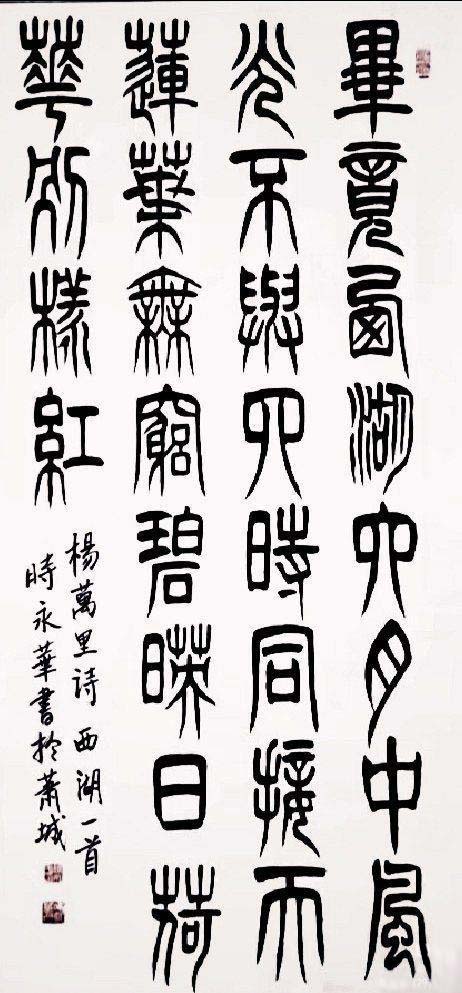 畢竟西湖六月中風
光不與四時同接天
蓮葉無窮碧暎日荷
華別樣紅
楊萬里詩西湖一首
時永華書於蕭城